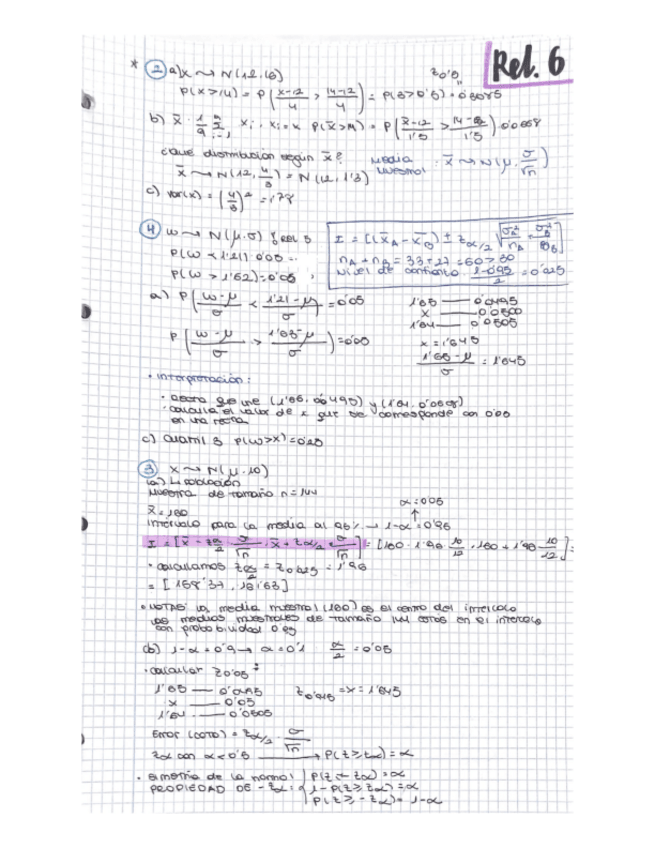 Rel. 6
* 2 a) x ~> N(12, 16) z0'5
P(x>14) = P(x-12/4 > 14-12/4) = P(z>0'5) = 0'3085
b) x̄ = 1/9 P(x̄>14) = P(x̄-12/1'5 >
¿que distribución según x̄? media muestral: x̄ ~> N(μ, σ/√n)
x̄ ~> N(12, 4/3) = N(12, 1'3)
c) Var(x) = (4/3)² = 1'78
4 w ~> N(μ, σ)
P(w < 1'21) = 0'05
P(w > 1'62) = 0'05
I = [(x̄A - x̄B) ± zα/2 √σA²/nA + σB²/nB]
nA + nB = 33+27 = 60 > 30
nivel de confianza 1-0'95/2 = 0'025
a) P[w-μ/σ < 1'21-μ/σ] = 0'05
P[w-μ/σ > 1'63-μ/σ] = 0'05
1'65 — 0'0495
x — 0'0500
1'64 — 0'0505
x = 1'645
1'65-μ/σ = 1'645
• Interpretación:
• recta que une (1'65, 0'0495) y
• calcula el valor de x que se corresponde con 0'05
en una recta
c) Cuartil 3 P(w>x) = 0'25
3 x ~> N(μ, 10)
(a) población
Muestra de tamaño n = 144
x̄ = 160 α = 0'05
intervalo para la media al 95% → 1-α = 0'95
I = [x̄ - zα/2 σ/√n, x̄ + zα/2 σ/√n] = [160 - 1'96 10/12, 160 + 1'96 10/12] =
• calculamos zα/2 = z0'025 = 1'96
= [158'37, 161'63]
• NOTAS la media muestral (160) es el centro del intervalo
las medias muestrales de tamaño 144 estas en el intervalo
con probabilidad 0'95
(b) 1-α = 0'9 → α = 0'1 α/2 = 0'05
• calcular z0'05:
1'65 — 0'0495
x — 0'05
1'64 — 0'0505
= x = 1'645
Error (cota) = zα/2 · σ/√n
zα con α<0'5 → P(z≥zα) = α
• simetría de la normal P(z≤-zα) = α
PROPIEDAD DE -zα: 1-P(z≥zα) = α
P(z≥-zα) = 1-α